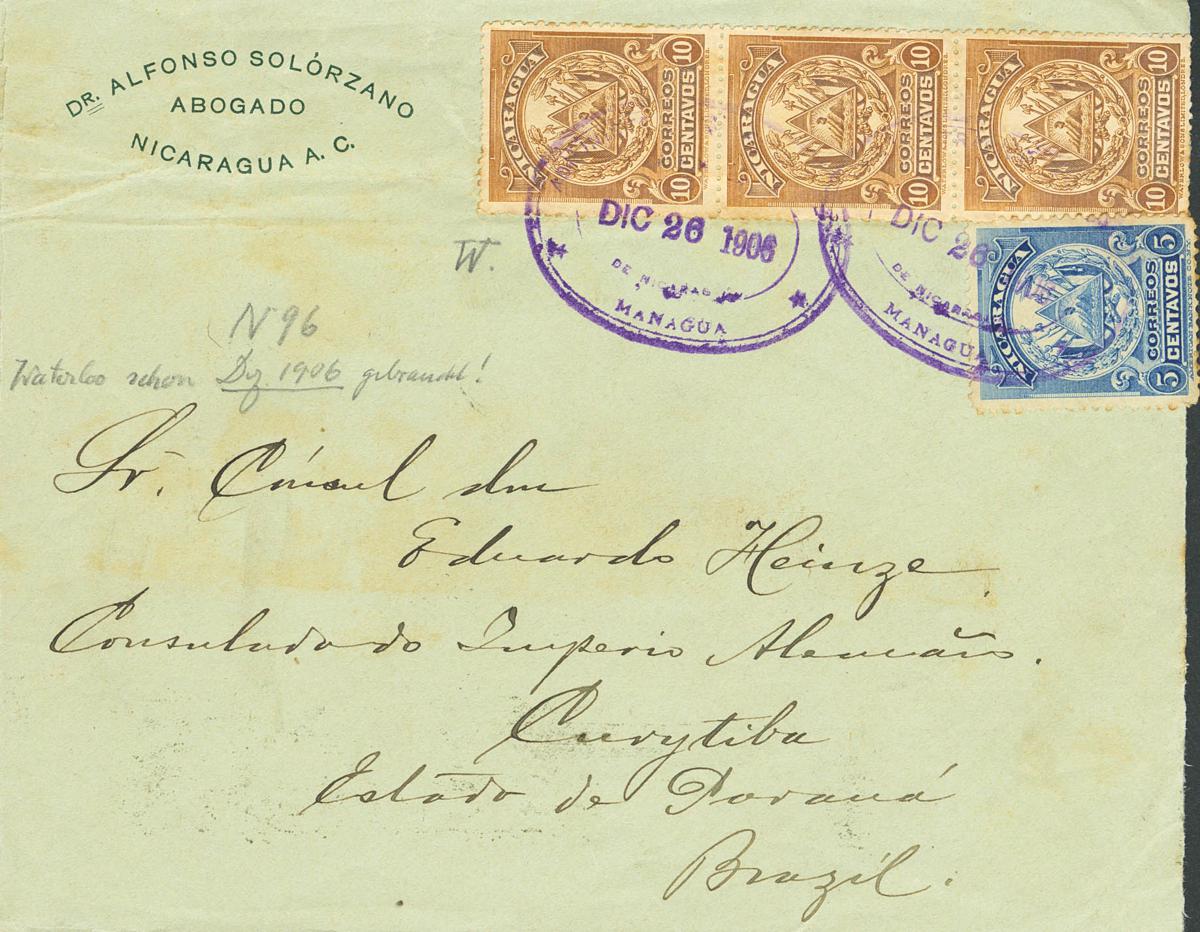 DR. ALFONSO SOLÓRZANO
ABOGADO
NICARAGUA A. C.
NICARAGUA CORREOS 10 CENTAVOS 10
NICARAGUA CORREOS 10 CENTAVOS 10
NICARAGUA CORREOS 10 CENTAVOS 10
NICARAGUA CORREOS 5 CENTAVOS 5
DIC 26 1906
DE NICARAGUA
MANAGUA
DIC 26
DE NICARAGUA
MANAGUA
W.
N 96
Waterloo schon Dez. 1906 gebraucht!
Sr. Cónsul don
Eduardo Heinze
Consulado do Imperio Alemão.
Curytiba
Estado de Paraná
Brazil.